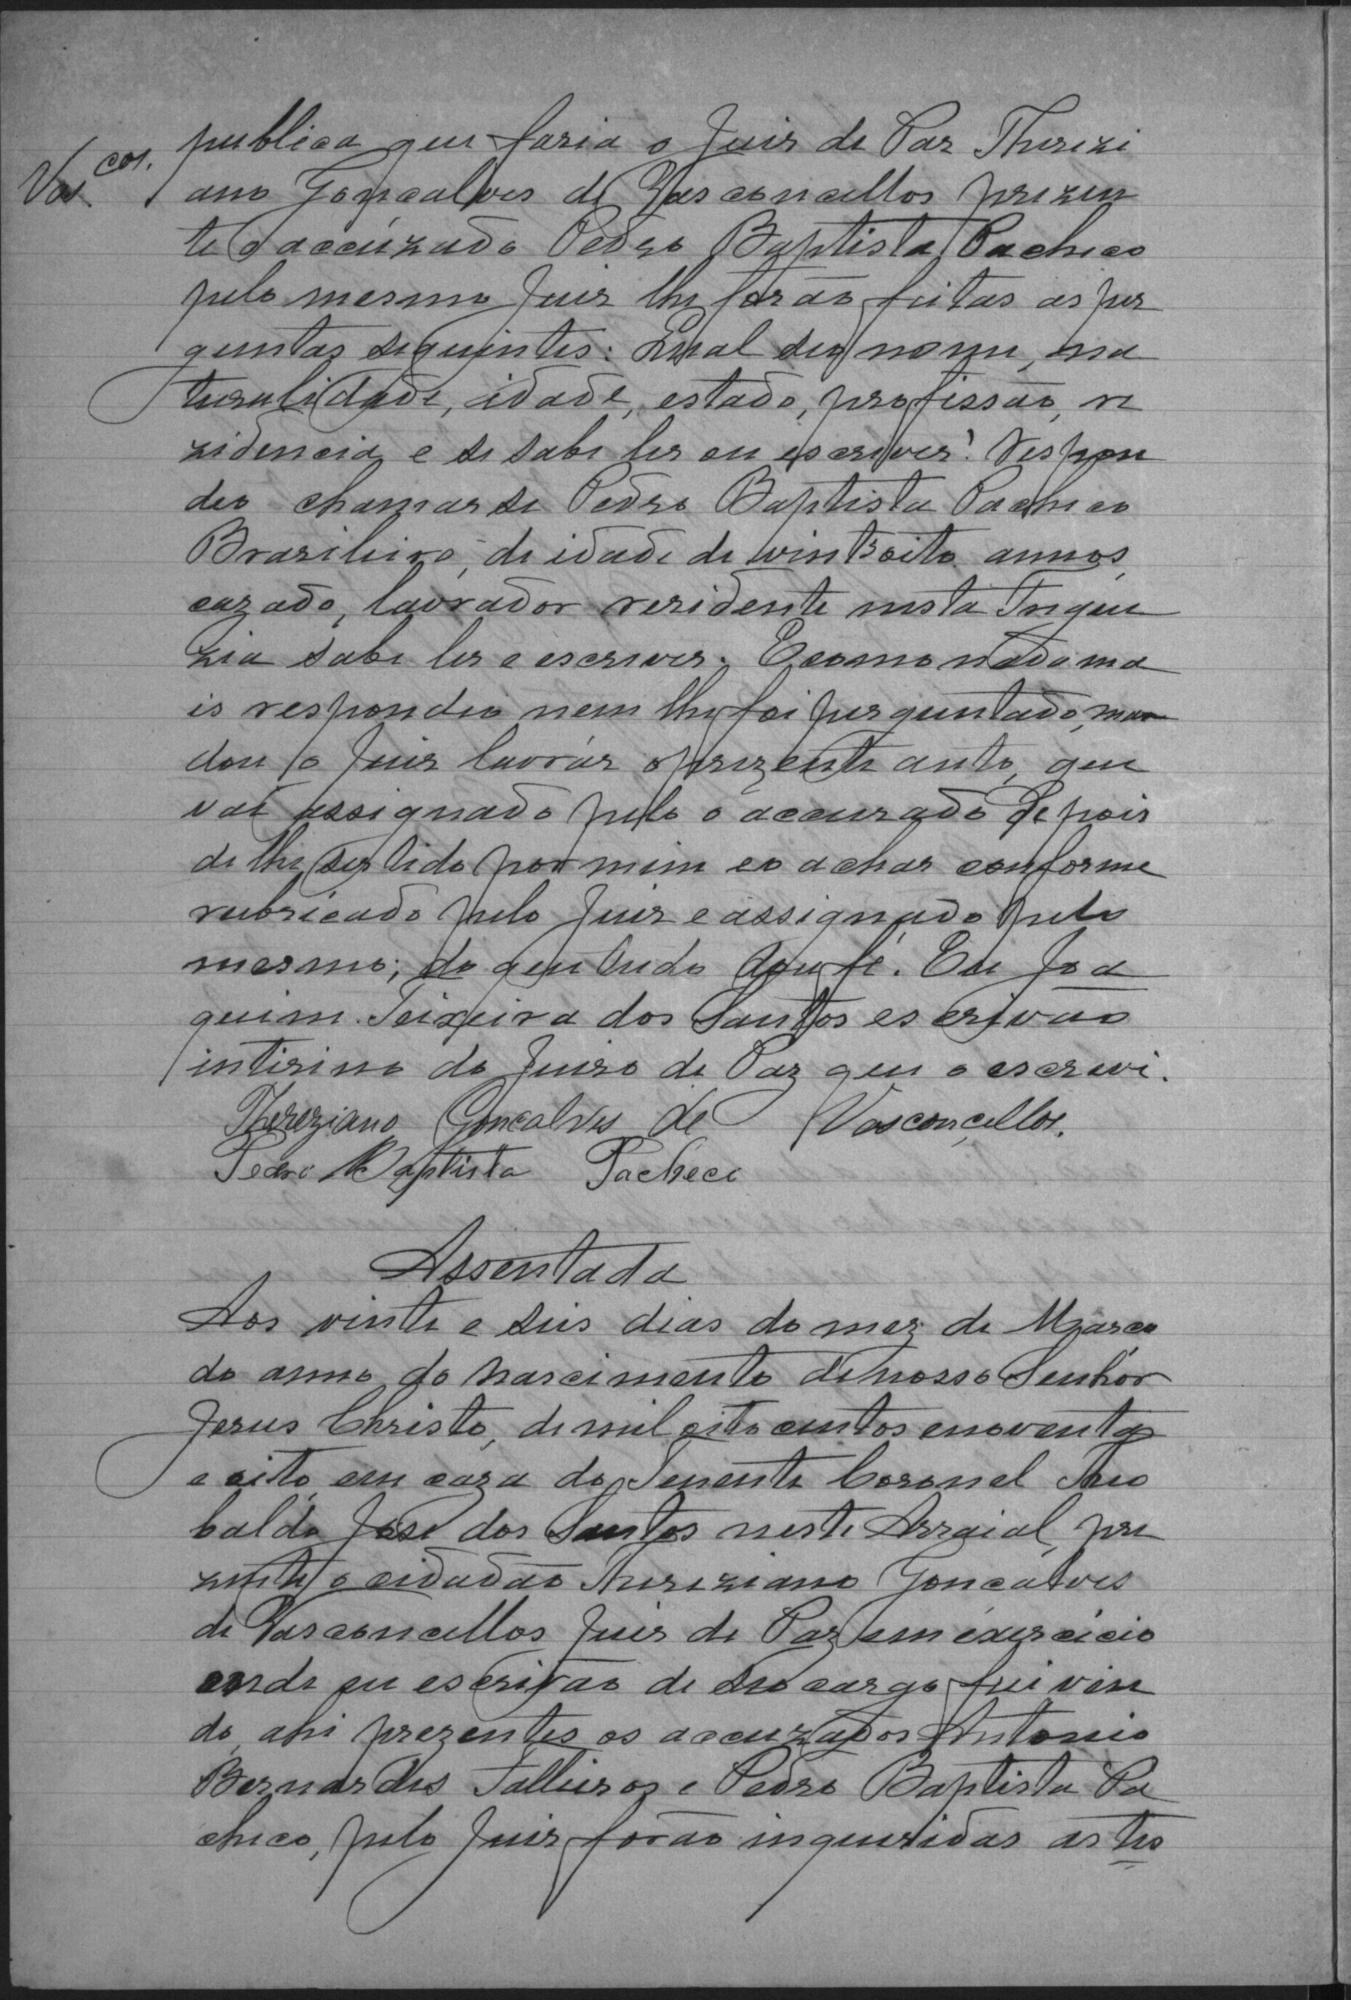 Vas.cos.
publica que faria o Juis de Paz Therezi
ano Gonçalves de Vasconcellos prezen
te o accuzado Pedro Baptista Pacheco
pelo mesmo Juis lhe forão feitas as per
guntas seguintes: Qual seo nome, na
turalidade, idade, estado, profissão, re
zidencia e se sabe ler ou escrever? Respon
deo chamar se Pedro Baptista Pacheco
Brazileiro, de idade de vinte oito annos,
cazado, lavrador rezidente nesta Fregue
zia sabe ler e escrever. E como nada ma
is respondeo nem lhe foi perguntado, man
dou o Juis lavrar o prezente auto, que
vai assignado pelo o accuzado depois
de lhe ser lido por mim e o achar conforme
rubricado pelo Juis e assignado pelo
mesmo; do que tudo dou fé. Eu Joa
quim Teixeira dos Santos escrivão
interino do Juizo de Paz que o escrevi.
Thereziano Gonçalves de Vasconcellos.
Pedro Baptista Pacheco
Assentada
Aos vinte e seis dias do mez de Março
do anno do nascimento de nosso Senhor
Jezus Christo, de mil oito centos enoventa
e oito, em caza do Tenente Coronel Theo
baldo José dos Santos neste Arraial, pre
zente o cidadão Thereziano Gonçalves
de Vasconcellos Juis de Paz em exercicio
onde eu escrivão de seo cargo fui vin
do, ahi prezentes os accuzados Antonio
Bernardes Falleiros e Pedro Baptista Pa
checo, pelo Juis forão inqueridas as tes